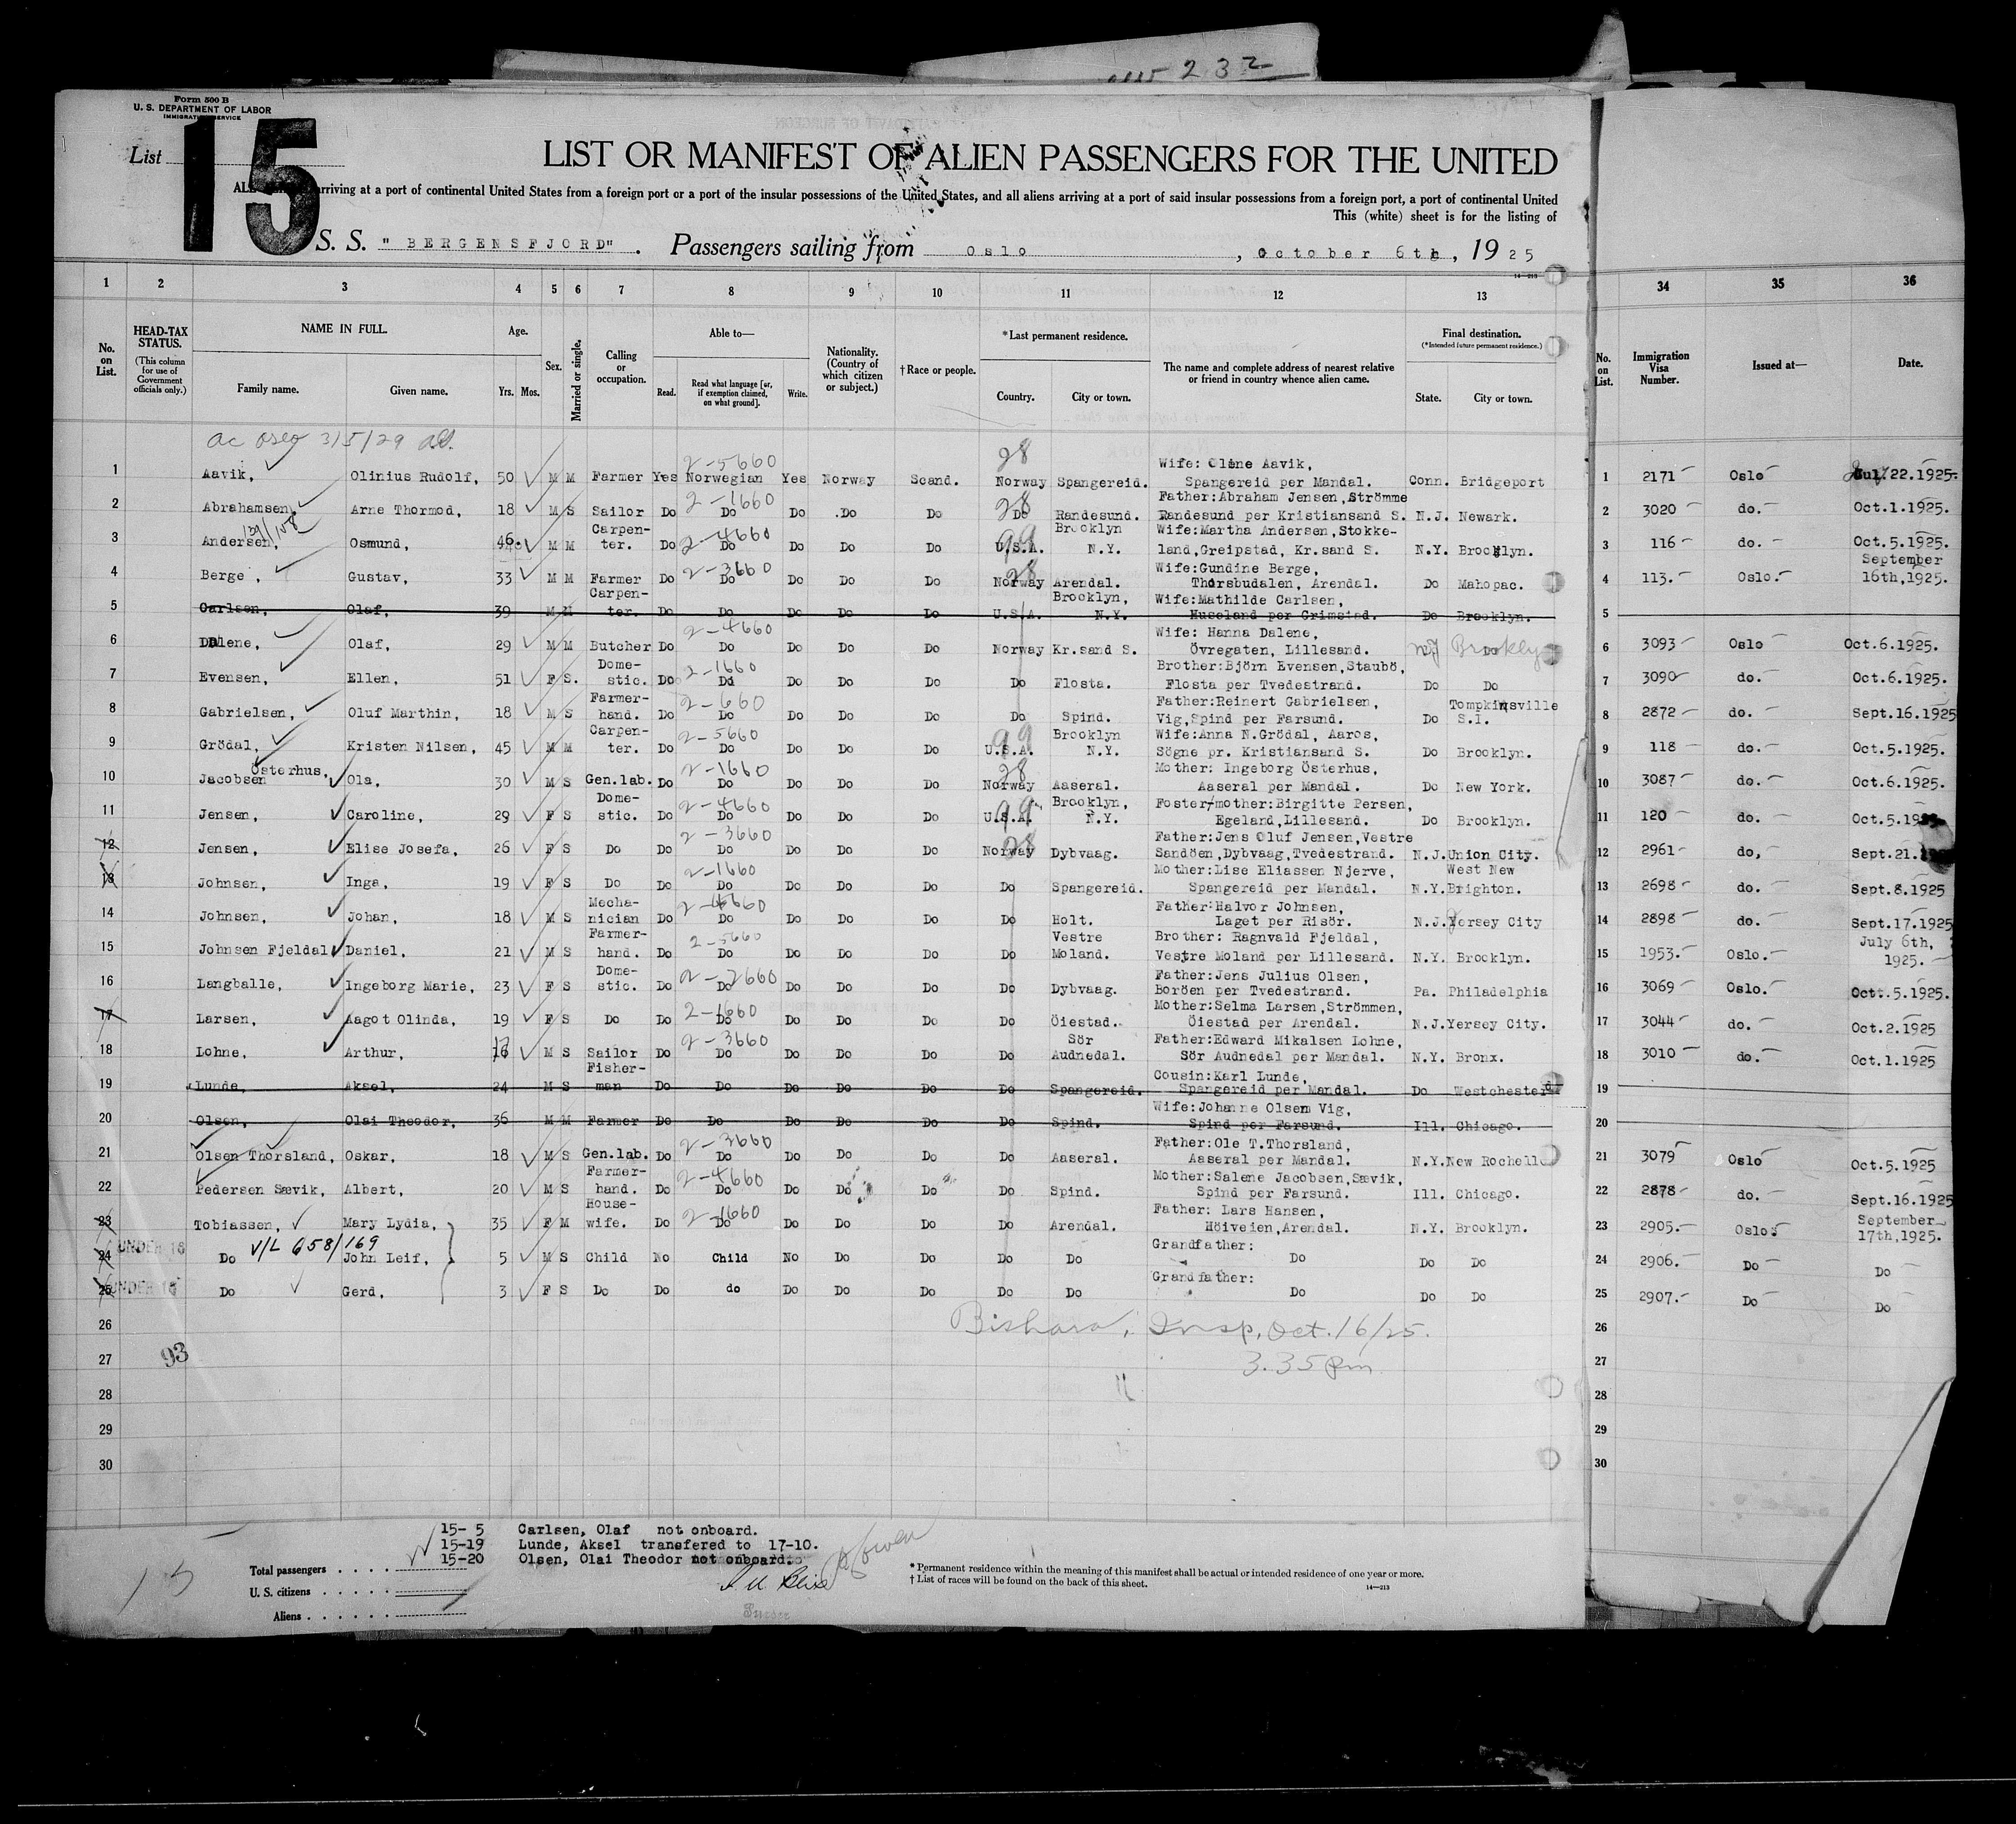 232
Form 500 B
U. S. DEPARTMENT OF LABOR
IMMIGRATION SERVICE
List 15
LIST OR MANIFEST OF ALIEN PASSENGERS FOR THE UNITED
ALL arriving at a port of continental United States from a foreign port or a port of the insular possessions of the United States, and all aliens arriving at a port of said insular possessions from a foreign port, a port of continental United
This (white) sheet is for the listing of
S. S. "BERGENSFJORD". Passengers sailing from Oslo, October 6th, 1925
14—213
1 2 3 4 5 6 7 8 9 10 11 12 13 34 35 36
No. on List. HEAD-TAX STATUS. (This column for use of Government officials only.) NAME IN FULL. Family name. Given name. Age. Yrs. Mos. Sex. Married or single. Calling or occupation. Able to— Read. Read what language [or, if exemption claimed, on what ground]. Write. Nationality. (Country of which citizen or subject.) †Race or people. *Last permanent residence. Country. City or town. The name and complete address of nearest relative or friend in country whence alien came. Final destination. (*Intended future permanent residence.) State. City or town. No. on List. Immigration Visa Number. Issued at— Date.
ac Oslo 3/5/29
1 Aavik, Olinius Rudolf, 50 M M Farmer Yes Norwegian 2-5660 Yes Norway Scand. 28 Norway Spangereid. Wife: Oline Aavik, Spangereid per Mandal. Conn. Bridgeport 1 2171 Oslo Jul. 22.1925.
2 Abrahamsen, Arne Thormod, 18 M S Sailor Do 2-1660 Do Do Do Do 28 Do Randesund. Father:Abraham Jensen,Strömme Randesund per Kristiansand S. N.J. Newark. 2 3020 do. Oct.1.1925.
3 Andersen, Osmund, 46. M M Carpen-ter. Do 2-4660 Do Do Do Do 99 U.S.A. Brooklyn N.Y. Wife:Martha Andersen, Stokke-land,Greipstad, Kr.sand S. N.Y. Brooklyn. 3 116 do. Oct.5.1925.
4 Berge, Gustav, 33 M M Farmer Do 2-3660 Do Do Do Do 28 Norway Arendal. Wife:Gundine Berge, Thorsbudalen, Arendal. Do Mahopac. 4 113. Oslo. September 16th,1925.
5 Carlsen, Olaf, 39 M M Carpen-ter. Do Do Do Do Do U.S.A. Brooklyn, N.Y. Wife:Mathilde Carlsen, Huseland per Grimstad. Do Brooklyn. 5
6 Dalene, Olaf, 29 M M Butcher Do 2-4660 Do Do Do Do Norway Kr.sand S. Wife: Hanna Dalene, Övregaten, Lillesand. NY Brooklyn Do 6 3093 Oslo Oct.6.1925.
7 Evensen, Ellen, 51 F S. Dome-stic. Do 2-1660 Do Do Do Do Do Flosta. Brother:Björn Evensen,Staubö, Flosta per Tvedestrand. Do Do 7 3090 do. Oct.6.1925.
8 Gabrielsen, Oluf Marthin, 18 M S Farmer-hand. Do 2-660 Do Do Do Do Do Spind. Father:Reinert Gabrielsen, Vig,Spind per Farsund. Do Tompkinsville S.I. 8 2872 do. Sept.16.1925
9 Grödal, Kristen Nilsen, 45 M M Carpen-ter. Do 2-5660 Do Do Do Do 99 U.S.A. Brooklyn N.Y. Wife:Anna N.Grödal, Aaros, Sögne pr. Kristiansand S. Do Brooklyn. 9 118 do. Oct.5.1925.
10 Jacobsen Österhus, Ola, 30 M S Gen.lab. Do 2-1660 Do Do Do Do 28 Norway Aaseral. Mother: Ingeborg Österhus, Aaseral per Mandal. Do New York. 10 3087 do. Oct.6.1925.
11 Jensen, Caroline, 29 F S Dome-stic. Do 2-4660 Do Do Do Do 99 U.S.A. Brooklyn, N.Y. Foster/mother:Birgitte Persen, Egeland,Lillesand. Do Brooklyn. 11 120 do. Oct.5.19
12 Jensen, Elise Josefa, 26 F S Do Do 2-3660 Do Do Do Do 28 Norway Dybvaag. Father:Jens Oluf Jensen,Vestre Sandöen,Dybvaag,Tvedestrand. N.J. Union City. 12 2961 do, Sept.21.
13 Johnsen, Inga, 19 F S Do Do 2-1660 Do Do Do Do Do Spangereid. Mother:Lise Eliassen Njerve, Spangereid per Mandal. N.Y. West New Brighton. 13 2698 do. Sept.8.1925
14 Johnsen, Johan, 18 M S Mecha-nician Do 2-4660 Do Do Do Do Do Holt. Father:Halvor Johnsen, Laget per Risör. N.J. Yersey City 14 2898 do. Sept.17.1925
15 Johnsen Fjeldal, Daniel, 21 M S Farmer-hand. Do 2-5660 Do Do Do Do Do Vestre Moland. Brother: Ragnvald Fjeldal, Vestre Moland per Lillesand. N.Y. Brooklyn. 15 1953. Oslo. July 6th, 1925.
16 Langballe, Ingeborg Marie, 23 F S Dome-stic. Do 2-2660 Do Do Do Do Do Dybvaag. Father:Jens Julius Olsen, Boröen per Tvedestrand. Pa. Philadelphia 16 3069 Oslo. Oct.5.1925.
17 Larsen, Aagot Olinda, 19 F S Do Do 2-1660 Do Do Do Do Do Öiestad. Mother:Selma Larsen,Strömmen, Öiestad per Arendal. N.J. Yersey City. 17 3044 do. Oct.2.1925
18 Lohne, Arthur, 17 M S Sailor Do 2-3660 Do Do Do Do Do Sör Audnedal. Father:Edward Mikalsen Lohne, Sör Audnedal per Mandal. N.Y. Bronx. 18 3010 do. Oct.1.1925
19 Lunde, Aksel, 24 M S Fisher-man Do Do Do Do Do Do Spangereid. Cousin:Karl Lunde, Spangereid per Mandal. Do Westchester 19
20 Olsen, Olai Theodor, 36 M M Farmer Do Do Do Do Do Do Spind. Wife:Johanne Olsen Vig, Spind per Farsund. Ill. Chicago. 20
21 Olsen Thorsland, Oskar, 18 M S Gen.lab. Do 2-3660 Do Do Do Do Do Aaseral. Father:Ole T.Thorsland, Aaseral per Mandal. N.Y. New Rochelle 21 3079 Oslo Oct.5.1925
22 Pedersen Sævik, Albert, 20 M S Farmer-hand. Do 2-4660 Do Do Do Do Do Spind. Mother:Salene Jacobsen,Sævik, Spind per Farsund. Ill. Chicago. 22 2878 do. Sept.16.1925
23 Tobiassen, Mary Lydia, 35 F M House-wife. Do 2-1660 Do Do Do Do Do Arendal. Father: Lars Hansen, Höiveien,Arendal. N.Y. Brooklyn. 23 2905. Oslo. September 17th,1925.
24 UNDER 16 Do V/L 658/169 John Leif, 5 M S Child No Child No Do Do Do Do Grandfather: Do Do Do 24 2906. Do Do
25 UNDER 16 Do Gerd, 3 F S Do Do do Do Do Do Do Do Grandfather: Do Do Do 25 2907. Do Do
26 Bishara, Insp, Oct. 16/25. 26
27 93 3.35 pm 27
28 28
29 29
30 30
15- 5 Carlsen, Olaf not onboard.
15-19 Lunde, Aksel transfered to 17-10.
15-20 Olsen, Olai Theodor not onboard.
15
Total passengers
U. S. citizens
Aliens
* Permanent residence within the meaning of this manifest shall be actual or intended residence of one year or more.
† List of races will be found on the back of this sheet.
14—213